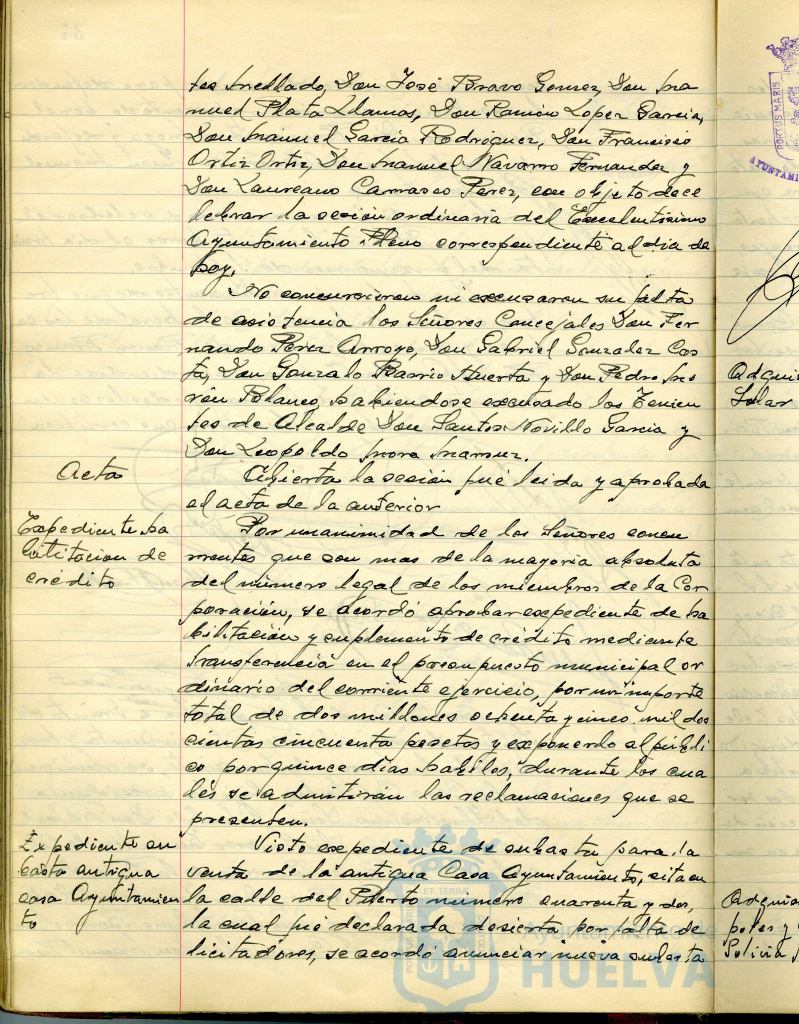 tos Mellado, Don José Bravo Gomez, Don Ma
nuel Plata Llamas, Don Ramón Lopez Garcia,
Don Manuel Garcia Rodriguez, Don Francisco
Ortiz Ortiz, Don Manuel Navarro Fernandez y
Don Laureano Carrasco Perez, con objeto de ce
lebrar la sesión ordinaria del Excelentisimo
Ayuntamiento Pleno correspondiente al dia de
hoy.
No concurrieron ni excusaron su falta
de asistencia los Señores Concejales Don Fer
nando Pérez Arroyo, Don Gabriel Gonzalez Cos
ta, Don Gonzalo Barrio Huerta y Don Pedro Mo
rón Blanco, habiendose excusado los Tenien
tes de Alcalde Don Santos Novillo Garcia y
Don Leopoldo Mora
Acta
Abierta la sesión fué leida y aprobada
el acta de la anterior
Expediente ha
bilitacion de
crédito
Por unanimidad de los Señores concu
rrentes que son mas de la mayoria absoluta
del número legal de los miembros de la Cor
poración, se acordó aprobar expediente de ha
bilitación y suplemento de crédito mediante
transferencia en el presupuesto municipal or
dinario del corriente ejercicio, por un importe
total de dos millones ochenta y cinco mil dos
cientas cincuenta pesetas y exponerlo al públi
co por quince dias habiles, durante los cua
les se admitirán las reclamaciones que se
presenten.
Expediente su
basta antigua
casa Ayuntamien
to
Visto expediente de subasta para la
venta de la antigua Casa Ayuntamiento, sita en
la calle del Puerto numero cuarenta y dos,
la cual fué declarada desierta por falta de
licitadores, se acordó anunciar nueva subasta
PORTUS MARIS
AYUNTAMI
Adqui
Solar
Adquis
poles y
Policia
PORTUS MARIS
ET TERRAE
Ayuntamiento de
HUELVA